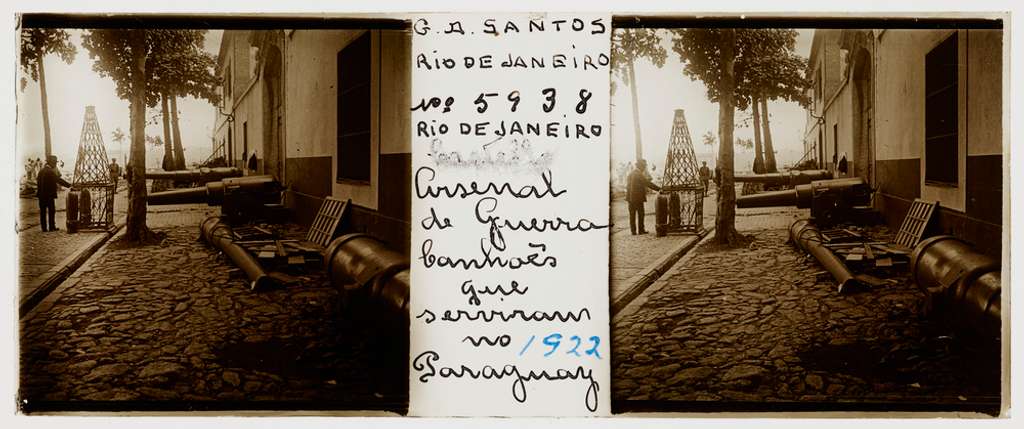 G. A. SANTOS
RIO DE JANEIRO
Nº 5938
RIO DE JANEIRO
Arsenal
de Guerra
Canhoẽs
que
serviram
no 1922
Paraguay